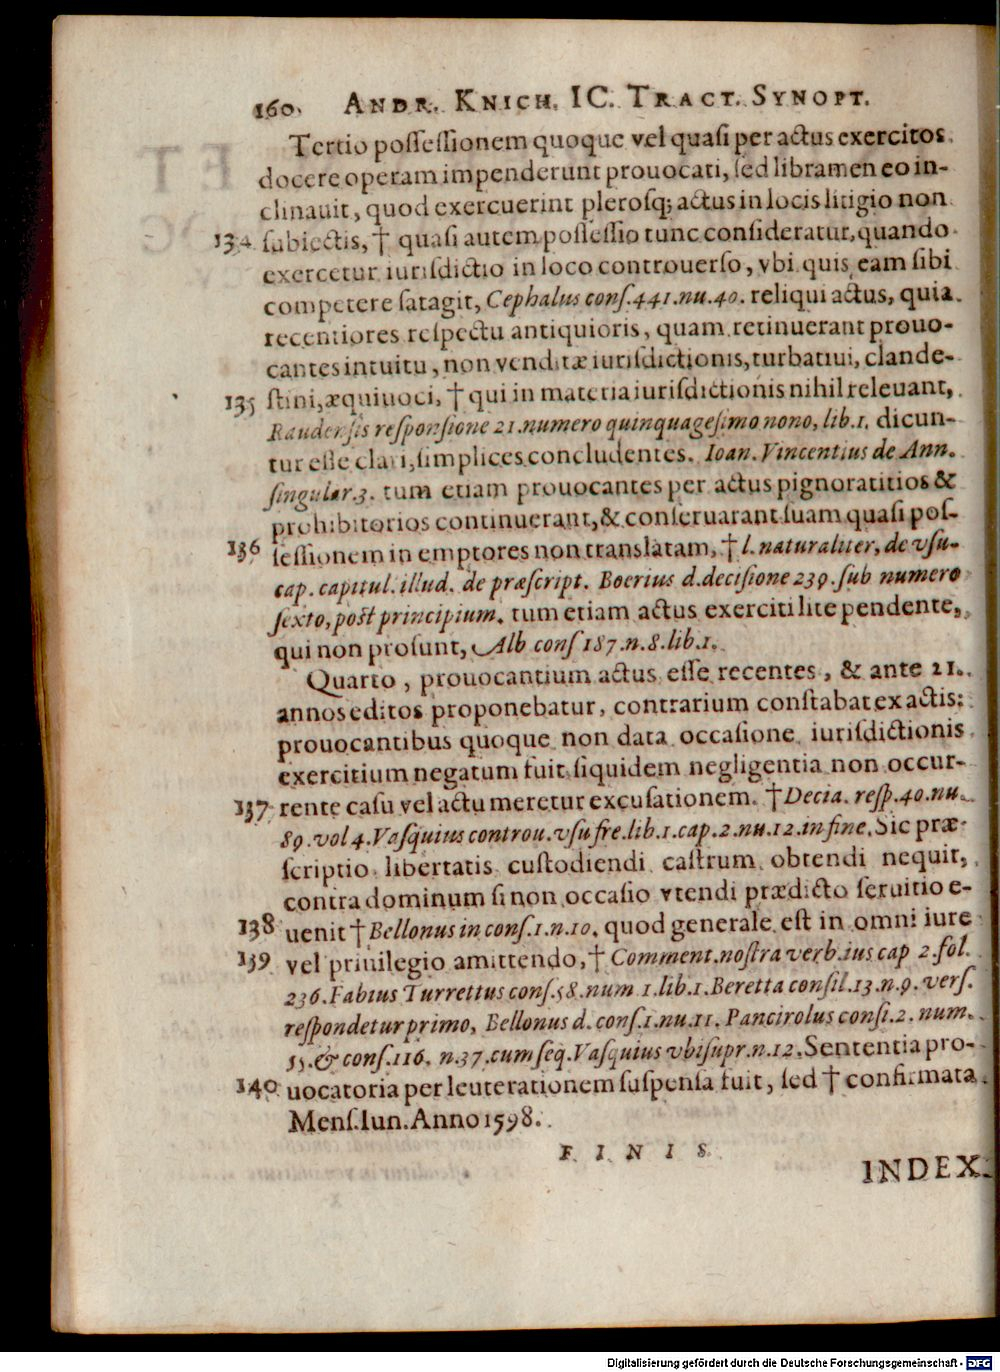 160. ANDR. KNICH. IC. TRACT. SYNOPT.
Tertio posſeſſionem quoque vel quaſi per actus exercitos
docere operam impenderunt prouocati, ſed libramen eo in-
clinauit, quod exercuerint plerosq; actus in locis litigio non
134 ſubiectis, † quaſi autem posſeſſio tunc conſideratur, quando
exercetur iurisdictio in loco controuerſo, vbi quis eam ſibi
competere ſatagit, Cephalus conſ.441.nu.40. reliqui actus, quia
recentiores reſpectu antiquioris, quam retinuerant prouo-
cantes intuitu, non venditæ iuriſdictionis, turbatiui, clande-
135 ſtini, æquiuoci, † qui in materia iuriſdictionis nihil releuant,
Raudenſis reſponſione 21.numero quinquageſimo nono, lib.1. dicun-
tur eſſe clari, ſimplices concludentes. Ioan. Vincentius de Ann.
ſingular.3. tum etiam prouocantes per actus pignoratitios &
prohibitorios continuerant, & conſeruarant ſuam quaſi poſ-
136 ſeſſionem in emptores non translatam, † l. naturaliter, de vſu-
cap. capitul. illud. de præſcript. Boerius d.deciſione 239. ſub numero
ſexto, poſt principium. tum etiam actus exerciti lite pendente,
qui non proſunt, Alb conſ 187.n.8.lib.1.
Quarto, prouocantium actus eſſe recentes, & ante 21.
annos editos proponebatur, contrarium conſtabat ex actis:
prouocantibus quoque non data occaſione iuriſdictionis
exercitium negatum fuit ſiquidem negligentia non occur-
137 rente caſu vel actu meretur excuſationem. † Decia. reſp.40.nu.
89.vol 4. Vaſquius controu.vſu fre.lib.1.cap.2.nu.12.in fine. Sic præ-
ſcriptio libertatis cuſtodiendi caſtrum obtendi nequit,
contra dominum ſi non occaſio vtendi prædicto ſeruitio e-
138 uenit † Bellonus in conſ.1.n.10. quod generale eſt in omni iure
139 vel priuilegio amittendo, † Comment.noſtra verb.ius cap 2.fol.
236. Fabius Turrettus conſ.58.num 1.lib.1. Beretta conſil.13.n.9. verſ.
reſpondetur primo, Bellonus d. conſ.1.nu.11. Pancirolus conſi.2. num.
55. & conſ.116. n.37.cum ſeq. Vaſquius vbi ſupr.n.12. Sententia pro-
140 uocatoria per leuterationem ſuſpenſa fuit, ſed † confirmata
Menſ. Iun. Anno 1598.
FINIS.
INDEX
Digitalisierung gefördert durch die Deutsche Forschungsgemeinschaft - DFG